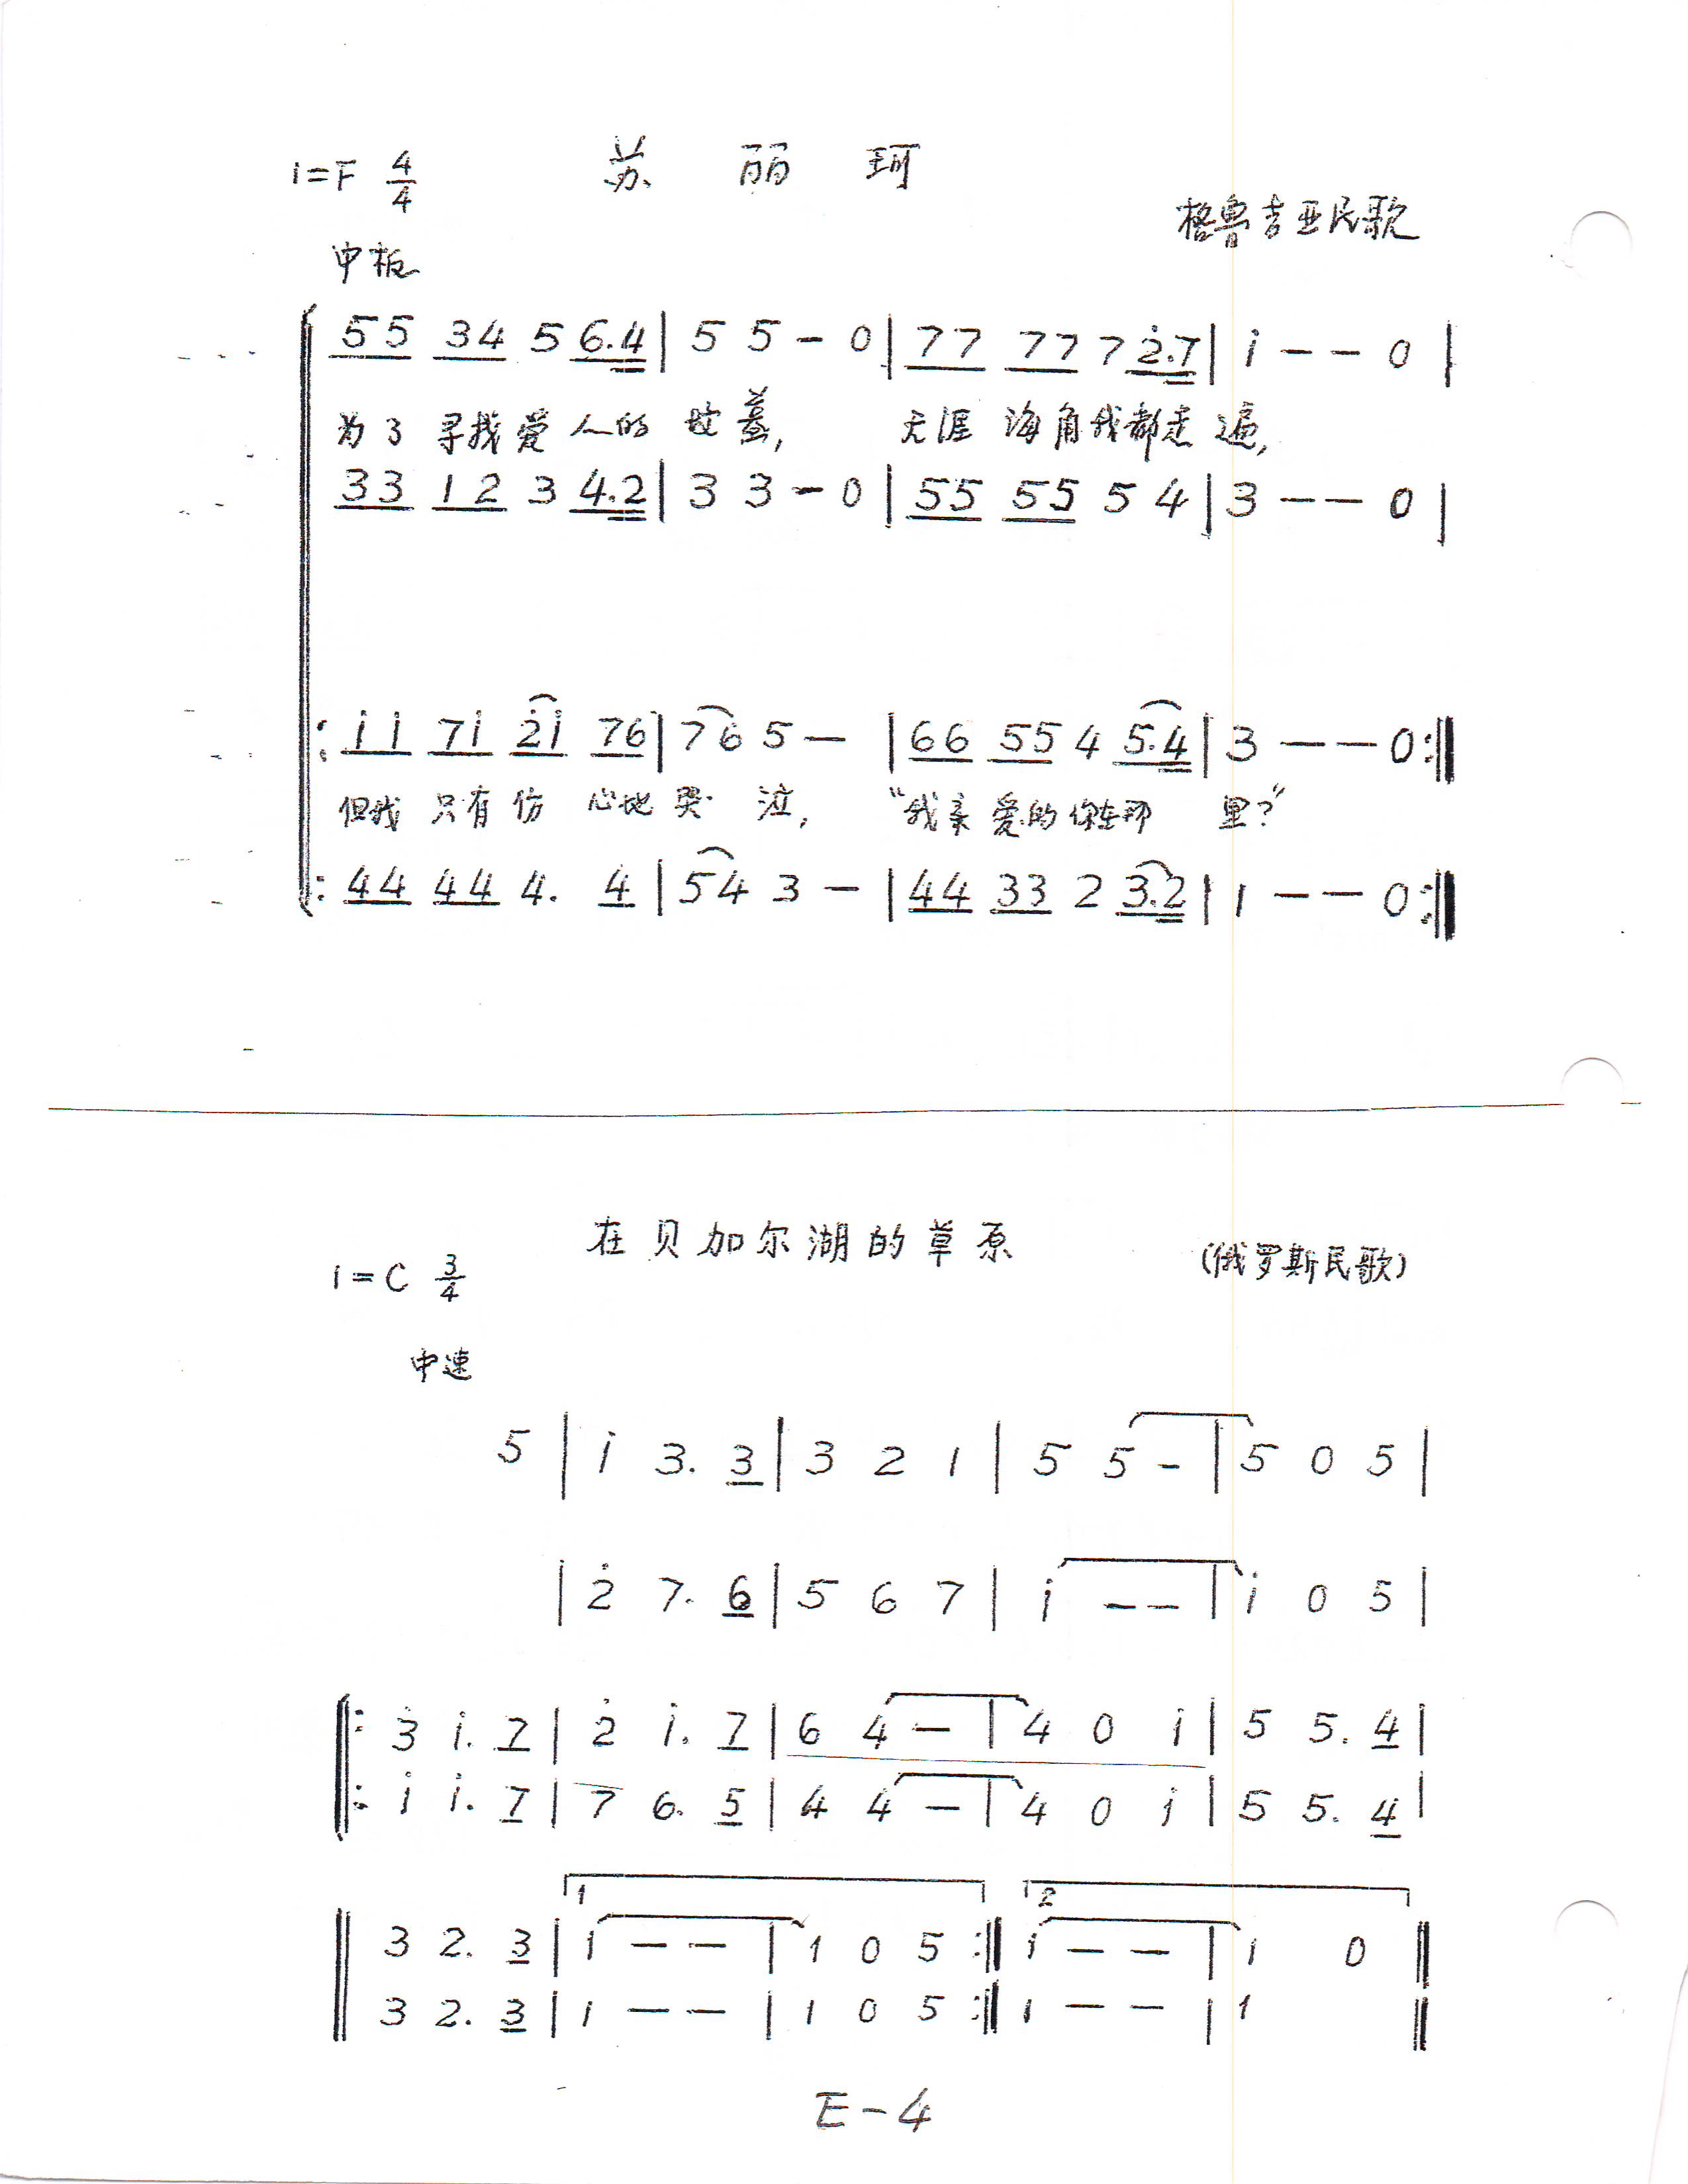 苏 丽 珂
1=F 4/4
格鲁吉亚民歌
中板
55 34 5 6.4 | 5 5 - 0 | 77 77 7 2̇.7 | i - - 0 |
为了 寻找 爱 人的 坟墓, 天涯 海角我都走 遍,
33 12 3 4.2 | 3 3 - 0 | 55 55 5 4 | 3 - - 0 |
: i i 7i 2̇i 76 | 76 5 - | 66 55 4 5.4 | 3 - - 0 :||
但我 只有 伤 心地 哭 泣, “我亲 爱的 你在那 里?”
: 44 44 4. 4 | 54 3 - | 44 33 2 3.2 | 1 - - 0 :||
在贝加尔湖的草原
(俄罗斯民歌)
1=C 3/4
中速
5 | i 3. 3 | 3 2 1 | 5 5 - | 5 0 5 |
| 2̇ 7. 6 | 5 6 7 | i - - | i 0 5 |
||: 3̇ i. 7 | 2̇ i. 7 | 6 4 - | 4 0 i | 5 5. 4 |
||: i i. 7 | 7 6. 5 | 4 4 - | 4 0 i | 5 5. 4 |
1 2
|| 3 2. 3 | i - - | 1 0 5 :|| i - - | i 0 ||
|| 3 2. 3 | 1 - - | 1 0 5 :|| 1 - - | 1 ||
E-4